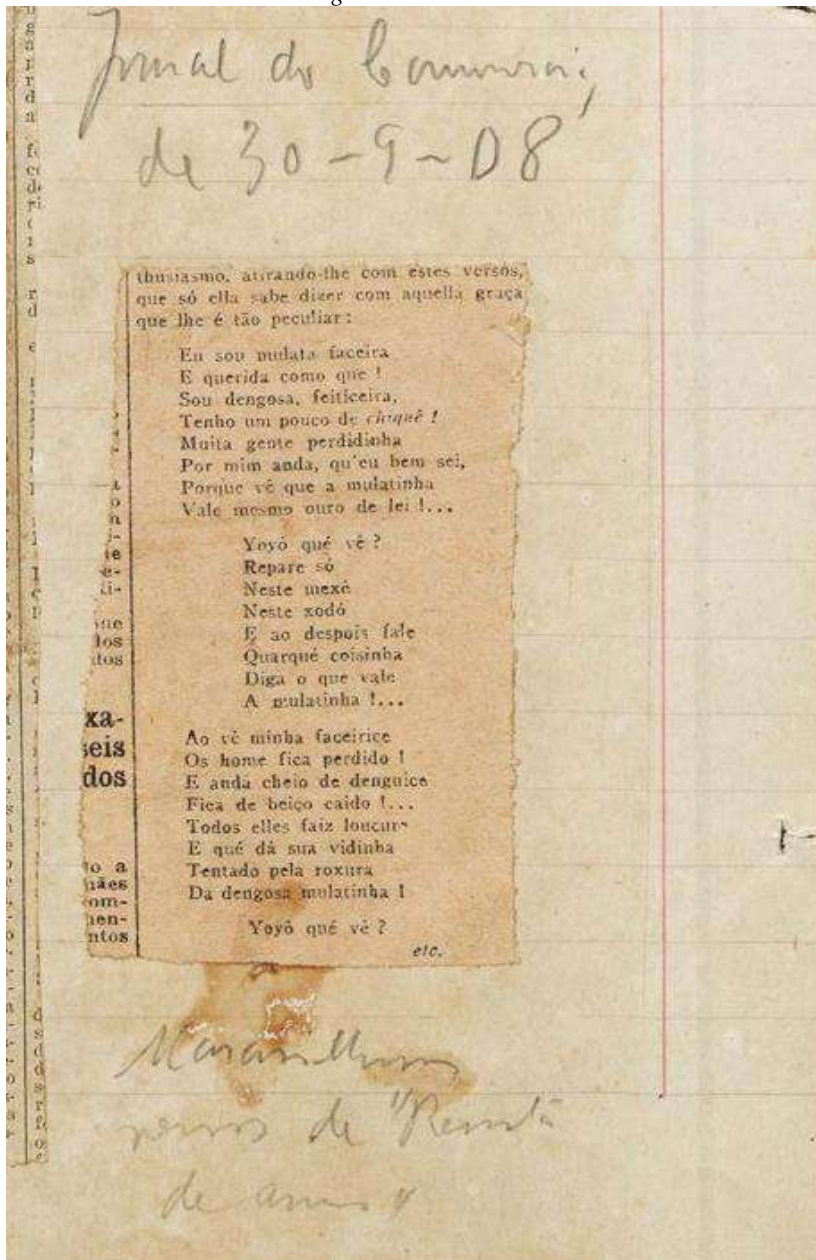 Jornal do Commercio,
de 30-9-08
thusiasmo, atirando-lhe com estes versos,
que só ella sabe dizer com aquella graça
que lhe é tão peculiar:
Eu sou mulata faceira
E querida como que !
Sou dengosa, feiticeira,
Tenho um pouco de chiquê !
Muita gente perdidinha
Por mim anda, qu'eu bem sei,
Porque vê que a mulatinha
Vale mesmo ouro de lei !...
Yoyô qué vê ?
Repare só
Neste mexê
Neste xodó
E ao despois fale
Quarqué coisinha
Diga o que vale
A mulatinha !...
Ao vê minha faceirice
Os home fica perdido !
E anda cheio de denguice
Fica de beiço caido !...
Todos elles faiz loucura
E qué dá sua vidinha
Tentado pela roxura
Da dengosa mulatinha !
Yoyô qué vê ?
etc.
xa-
seis
dos
o a
hães
om-
men-
ntos
de "Revista
de anno"